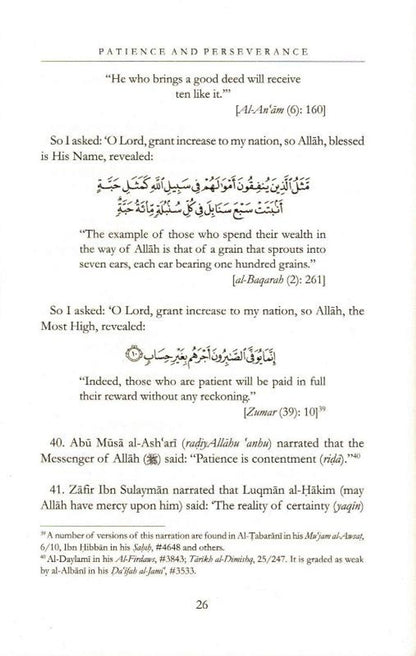 PATIENCE AND PERSEVERANCE
“He who brings a good deed will receive
ten like it.”’
[Al-An'ām (6): 160]
So I asked: ‘O Lord, grant increase to my nation, so Allāh, blessed
is His Name, revealed:
مَّثَلُ ٱلَّذِينَ يُنفِقُونَ أَمْوَٰلَهُمْ فِى سَبِيلِ ٱللَّهِ كَمَثَلِ حَبَّةٍ
أَنۢبَتَتْ سَبْعَ سَنَابِلَ فِى كُلِّ سُنۢبُلَةٍ مِّا۟ئَةُ حَبَّةٍ
“The example of those who spend their wealth in
the way of Allāh is that of a grain that sprouts into
seven ears, each ear bearing one hundred grains.”
[al-Baqarah (2): 261]
So I asked: ‘O Lord, grant increase to my nation, so Allāh, the
Most High, revealed:
إِنَّمَا يُوَفَّى ٱلصَّٰبِرُونَ أَجْرَهُم بِغَيْرِ حِسَابٍ ١٠
“Indeed, those who are patient will be paid in full
their reward without any reckoning.”
[Zumar (39): 10]39
40. Abū Mūsā al-Ash'arī (raḍiyAllāhu 'anhu) narrated that the
Messenger of Allāh (ﷺ) said: “Patience is contentment (riḍā).”40
41. Zāfir Ibn Sulaymān narrated that Luqmān al-Ḥākim (may
Allāh have mercy upon him) said: ‘The reality of certainty (yaqīn)
39 A number of versions of this narration are found in Al-Ṭabarānī in his Mu'jam al-Awsaṭ,
6/10, Ibn Ḥibbān in his Ṣaḥaḥ, #4648 and others.
40 Al-Daylamī in his Al-Firdaws, #3843; Tārikh al-Dimishq, 25/247. It is graded as weak
by al-Albānī in his Ḍa'īfah al-Jami', #3533.
26